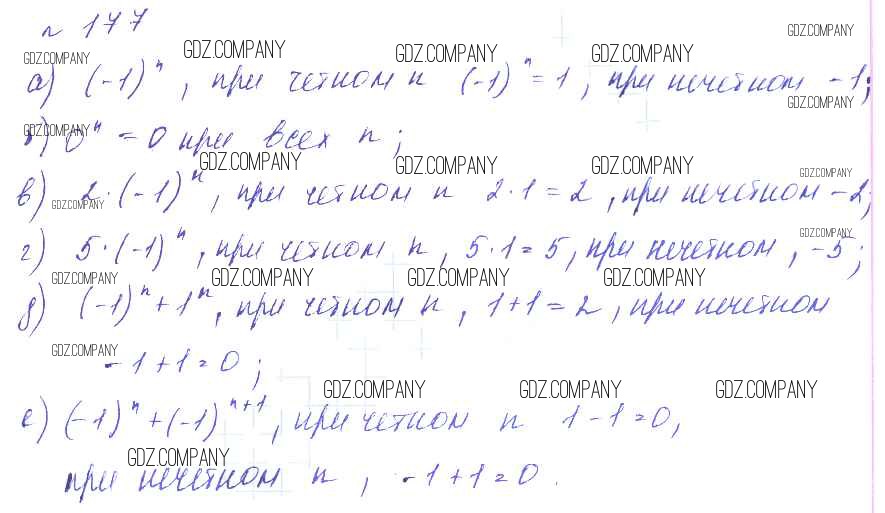 № 177
GDZ.COMPANY GDZ.COMPANY GDZ.COMPANY GDZ.COMPANY GDZ.COMPANY
а) (-1)ⁿ, при четном n (-1)ⁿ = 1, при нечетном -1;
GDZ.COMPANY GDZ.COMPANY
б) 0ⁿ = 0 при всех n;
GDZ.COMPANY GDZ.COMPANY GDZ.COMPANY GDZ.COMPANY
в) 2·(-1)ⁿ, при четном n 2·1=2, при нечетном -2;
GDZ.COMPANY GDZ.COMPANY
г) 5·(-1)ⁿ, при четном n, 5·1=5, при нечетном, -5;
GDZ.COMPANY GDZ.COMPANY GDZ.COMPANY GDZ.COMPANY
д) (-1)ⁿ+1ⁿ, при четном n, 1+1=2, при нечетном
GDZ.COMPANY
-1+1=0;
GDZ.COMPANY GDZ.COMPANY GDZ.COMPANY
е) (-1)ⁿ+(-1)ⁿ⁺¹, при четном n 1-1=0,
GDZ.COMPANY
при нечетном n, -1+1=0.